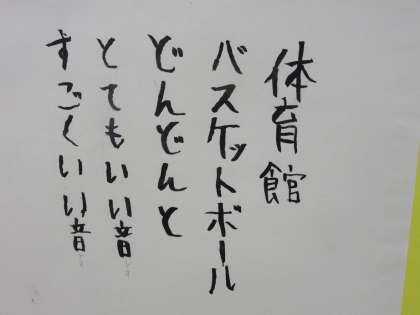 体育館
バスケットボール
どんどんと
とてもいい音
すごくいい音